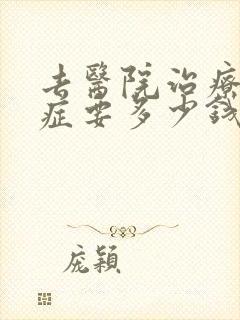 去醫院治療
症要多少錢
龐穎